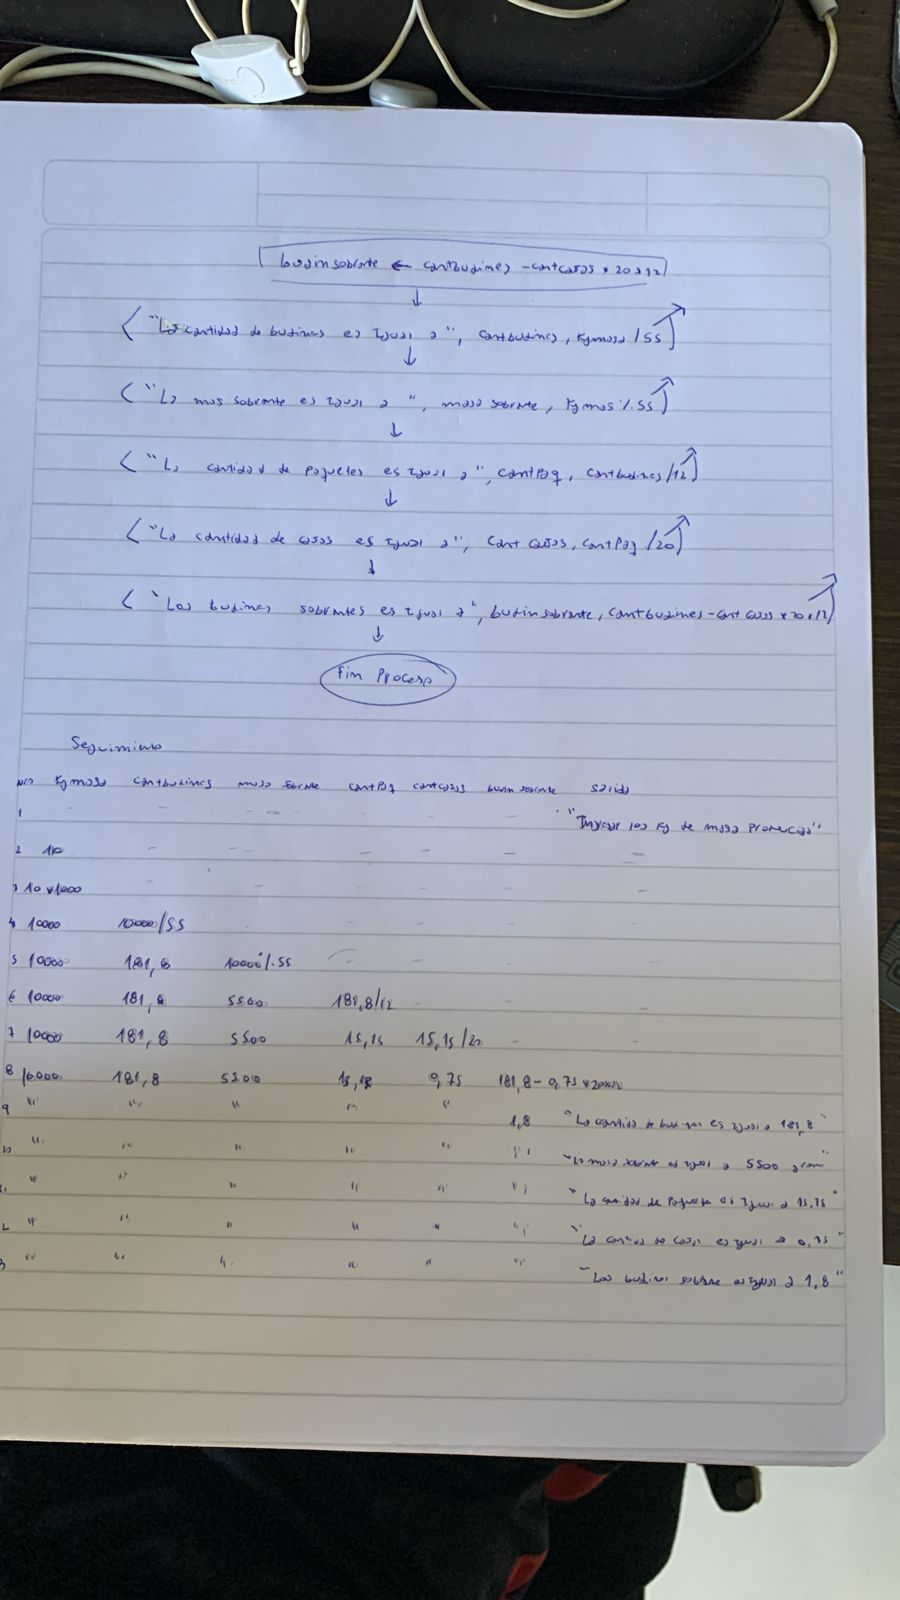 budinsobrante ← cantbudines - cantcajas * 20 * 12
"La cantidad de budines es igual a", cantbudines, Kgmasa / 55
"La mas sobrante es igual a", masa sobrante, Kgmas % 55
"La cantidad de paquetes es igual a", cantPaq, cantbudines / 12
"La cantidad de cajas es igual a", cant cajas, cantPaq / 20
"Los budines sobrantes es igual a", budinsobrante, cantbudines - cant cajas * 20 * 12
Fin Proceso
Seguimiento
Kgmasa cantbudines masa sobrante cantPaq cantcajas budin sobrante salida
1 - - - - - "Ingresar los Kg de masa producidos"
2 10 - - - - - -
3 10 * 1000 - - - - - -
4 10000 10000/55 - - - - -
5 10000 181,8 10000%.55 - - - -
6 10000 181,8 5500 181,8/12 - - -
7 10000 181,8 5500 15,15 15,15/20 -
8 10000 181,8 5500 15,15 0,75 181,8 - 0,75 * 20 * 12
9 " " " " " 1,8 "La cantidad de budines es igual a 181,8"
10 " " " " " " "La masa sobrante es igual a 5500 gram"
" " " " " " "La cantidad de Paquetes es igual a 15,15"
2 " " " " " " "La cantidad de cajas es igual a 0,75"
3 " " " " " " "Los budines sobrante es igual a 1,8"